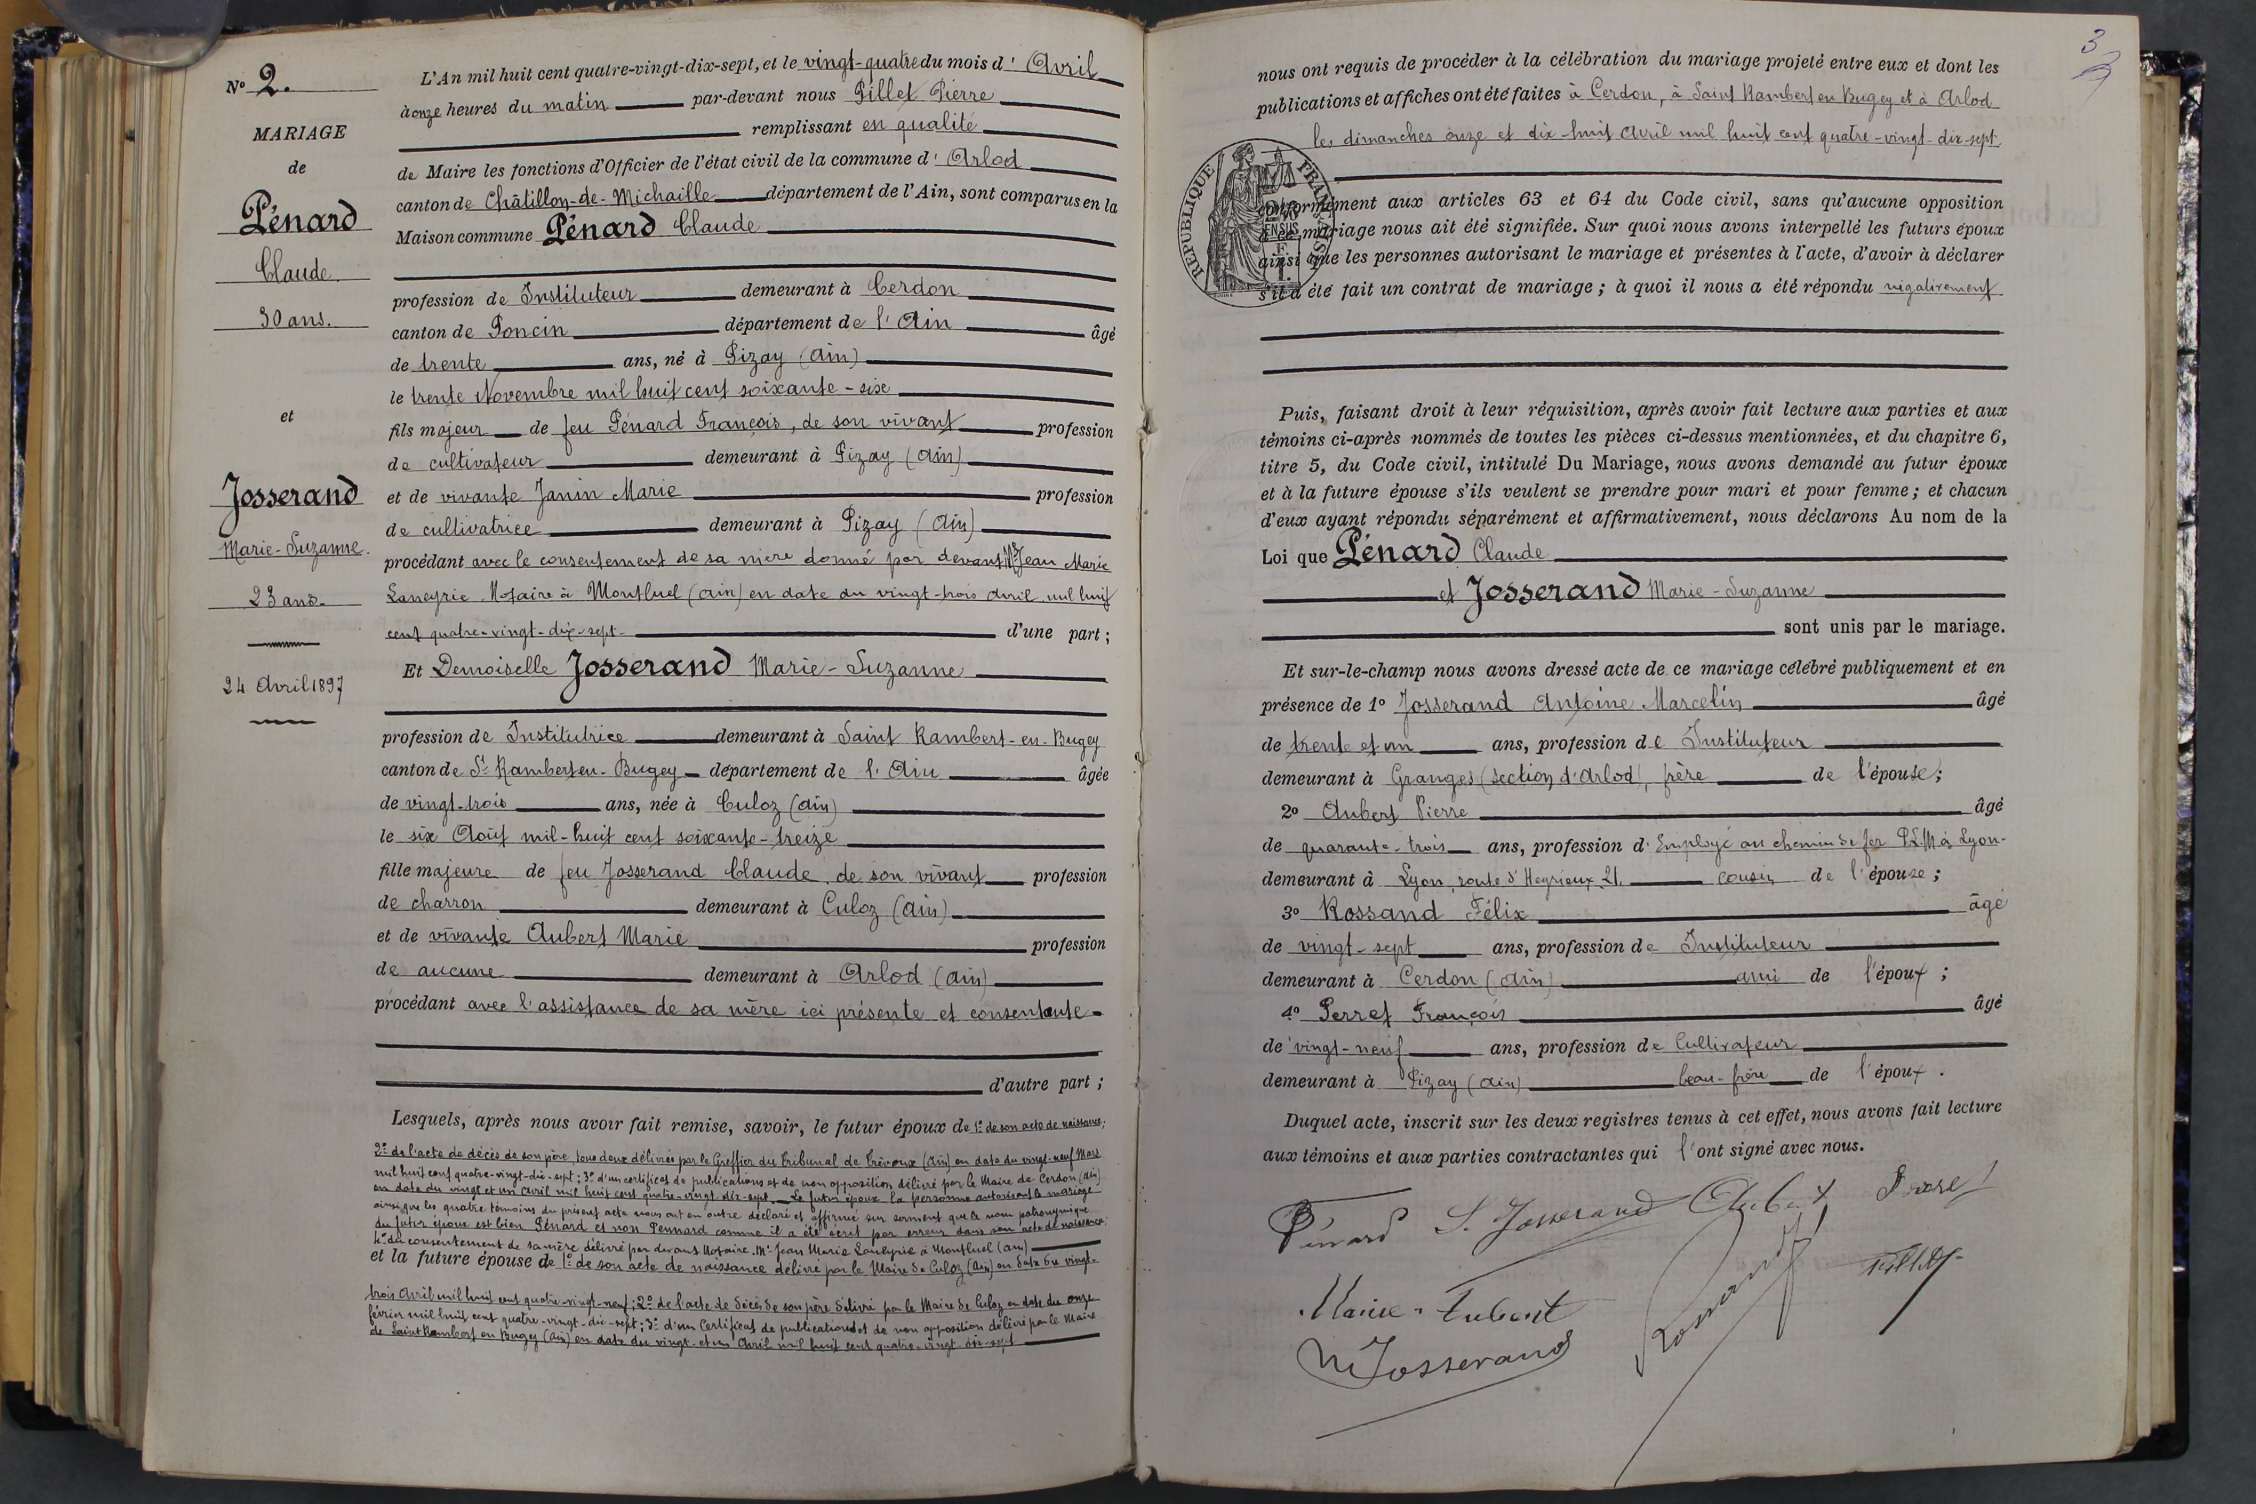 N° 2.
MARIAGE
de
Pénard
Claude
30 ans.
et
Josserand
Marie-Suzanne.
23 ans.
24 Avril 1897
L'An mil huit cent quatre-vingt-dix-sept, et le vingt-quatre du mois d'Avril
à onze heures du matin par-devant nous Pillet Pierre
remplissant en qualité
de Maire les fonctions d'Officier de l'état civil de la commune d'Arlod
canton de Châtillon-de-Michaille département de l'Ain, sont comparus en la
Maison commune Pénard Claude
profession de Instituteur demeurant à Cerdon
canton de Poncin département de l'Ain âgé
de trente ans, né à Pizay (Ain)
le trente Novembre mil huit cent soixante-six
fils majeur de feu Pénard François, de son vivant profession
de cultivateur demeurant à Pizay (Ain)
et de vivante Janin Marie profession
de cultivatrice demeurant à Pizay (Ain)
procédant avec le consentement de sa mère donné par devant Me Jean Marie
Laneyrie Notaire à Montluel (Ain) en date du vingt-trois Avril mil huit
cent quatre-vingt-dix-sept d'une part ;
Et Demoiselle Josserand Marie-Suzanne
profession de Institutrice demeurant à Saint Rambert-en-Bugey
canton de St Rambert en-Bugey département de l'Ain âgée
de vingt-trois ans, née à Culoz (Ain)
le six Août mil-huit cent soixante-treize
fille majeure de feu Josserand Claude de son vivant profession
de charron demeurant à Culoz (Ain)
et de vivante Aubert Marie profession
de aucune demeurant à Arlod (Ain)
procédant avec l'assistance de sa mère ici présente et consentante
d'autre part ;
Lesquels, après nous avoir fait remise, savoir, le futur époux de 1° de son acte de naissance ;
2° de l'acte de décès de son père, tous deux délivrés par le Greffier du Tribunal de Trévoux (Ain) en date du vingt-neuf Mars
mil huit cent quatre-vingt-dix-sept ; 3° d'un certificat de publications et de non opposition délivré par le Maire de Cerdon (Ain)
en date du vingt et un Avril mil huit cent quatre-vingt-dix-sept. Le futur époux la personne autorisant le mariage
ainsi que les quatre témoins du présent acte nous ont en outre déclaré et affirmé sur serment que le nom patronymique
du futur époux est bien Pénard et non Pennard comme il a été écrit par erreur dans son acte de naissance ;
4° du consentement de sa mère délivré par devant Notaire Me Jean Marie Laneyrie à Montluel (Ain)
et la future épouse de 1° de son acte de naissance délivré par le Maire de Culoz (Ain) en date du vingt-
trois Avril mil huit cent quatre-vingt-neuf ; 2° de l'acte de décès de son père délivré par le Maire de Culoz en date du onze
février mil huit cent quatre-vingt-dix-sept ; 3° d'un Certificat de publications et de non opposition délivré par le Maire
de Saint Rambert en Bugey (Ain) en date du vingt-et un Avril mil huit cent quatre-vingt-dix-sept
3
nous ont requis de procéder à la célébration du mariage projeté entre eux et dont les
publications et affiches ont été faites à Cerdon, à Saint Rambert en Bugey et à Arlod
les dimanches onze et dix-huit Avril mil huit cent quatre-vingt-dix-sept.
RÉPUBLIQUE FRANÇAISE
conformément aux articles 63 et 64 du Code civil, sans qu'aucune opposition
à ce mariage nous ait été signifiée. Sur quoi nous avons interpellé les futurs époux
ainsi que les personnes autorisant le mariage et présentes à l'acte, d'avoir à déclarer
s'il a été fait un contrat de mariage ; à quoi il nous a été répondu négativement
Puis, faisant droit à leur réquisition, après avoir fait lecture aux parties et aux
témoins ci-après nommés de toutes les pièces ci-dessus mentionnées, et du chapitre 6,
titre 5, du Code civil, intitulé Du Mariage, nous avons demandé au futur époux
et à la future épouse s'ils veulent se prendre pour mari et pour femme ; et chacun
d'eux ayant répondu séparément et affirmativement, nous déclarons Au nom de la
Loi que Pénard Claude
et Josserand Marie-Suzanne
sont unis par le mariage.
Et sur-le-champ nous avons dressé acte de ce mariage célébré publiquement et en
présence de 1° Josserand Antoine Marcelin âgé
de trente et un ans, profession de Instituteur
demeurant à Granges (section d'Arlod), frère de l'épouse ;
2° Aubert Pierre âgé
de quarante-trois ans, profession d'Employé au chemin de fer P.L.M à Lyon-
demeurant à Lyon, route d'Heyrieux 21, cousin de l'épouse ;
3° Rossand Félix âgé
de vingt-sept ans, profession de Instituteur
demeurant à Cerdon (Ain) ami de l'époux ;
4° Perret François âgé
de vingt-neuf ans, profession de Cultivateur
demeurant à Pizay (Ain) beau-frère de l'époux.
Duquel acte, inscrit sur les deux registres tenus à cet effet, nous avons fait lecture
aux témoins et aux parties contractantes qui l'ont signé avec nous.
Pénard S. Josserand Aubert Perret
Marie Aubert Rossand Pillet
M Josserand